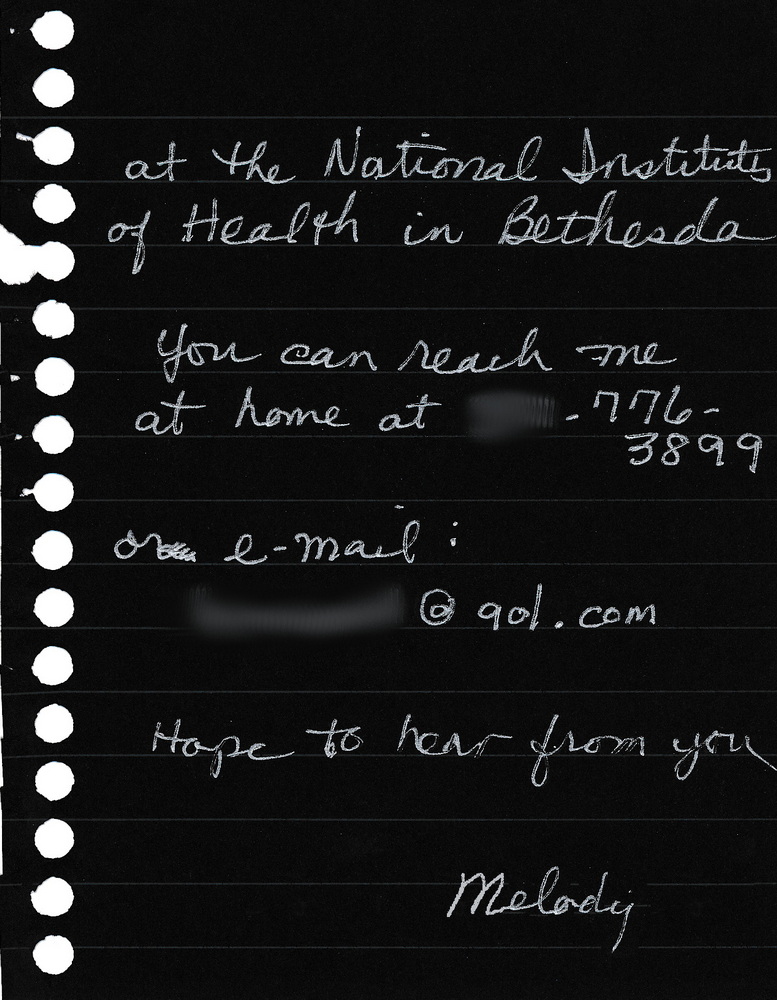 at the National Institutes
of Health in Bethesda
You can reach me
at home at -776-
3899
or e-mail :
@ aol.com
Hope to hear from you
Melody